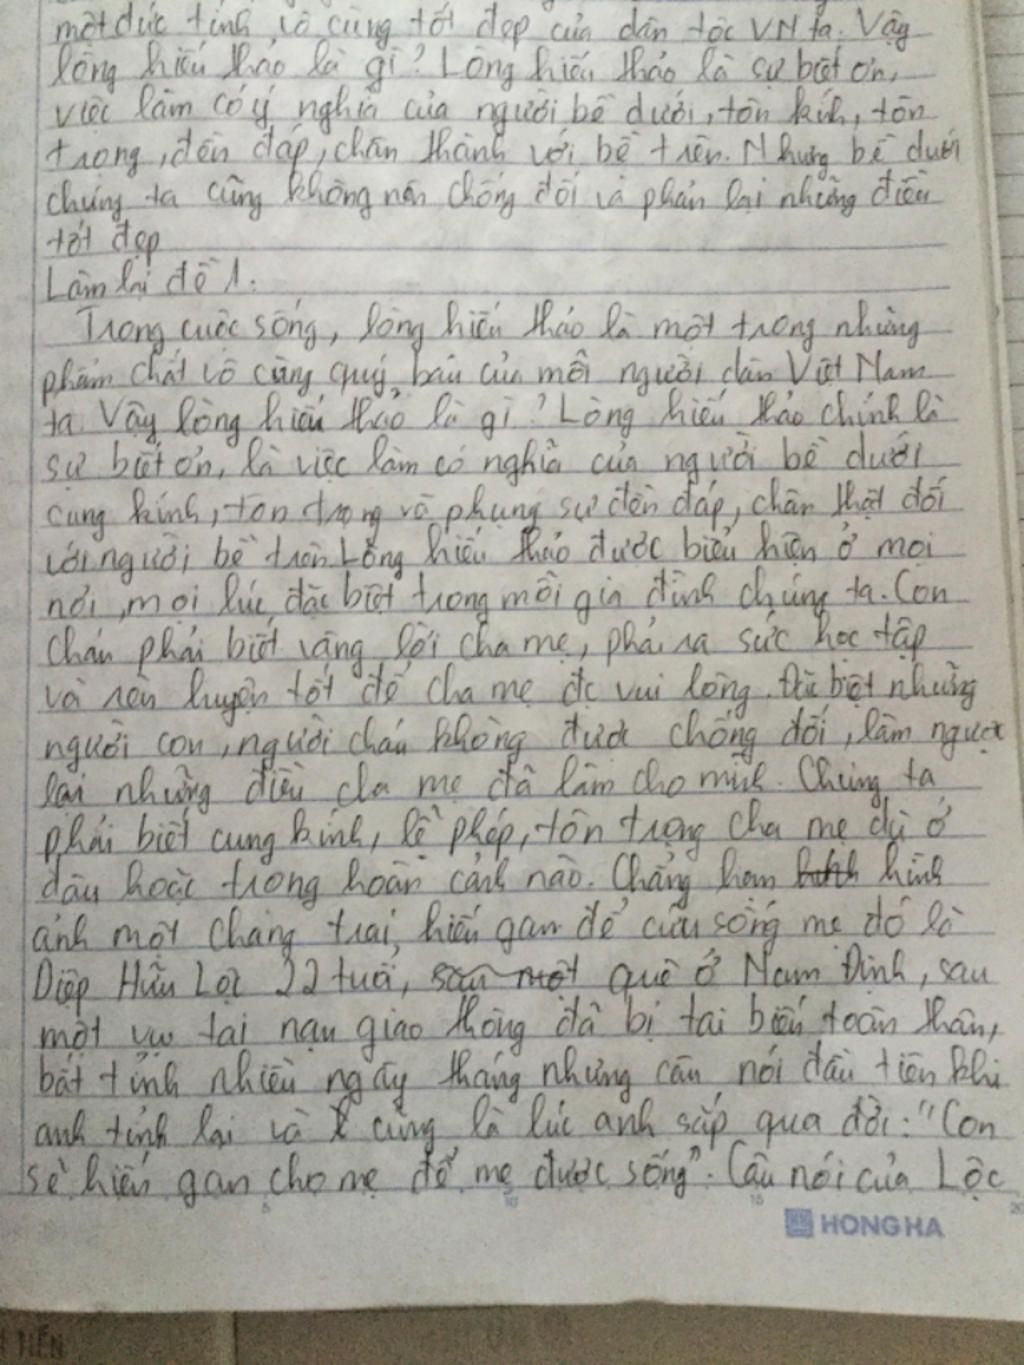 một đức tính vô cùng tốt đẹp của dân tộc VN ta. Vậy
lòng hiếu thảo là gì? Lòng hiếu thảo là sự biết ơn,
việc làm có ý nghĩa của người bề dưới, tôn kính, tôn
trọng, đền đáp, chân thành với bề trên. Nhưng bề dưới
chúng ta cũng không nên chống đối và phản lại những điều
tốt đẹp
Làm lại đề 1.
Trong cuộc sống, lòng hiếu thảo là một trong những
phẩm chất vô cùng quý báu của mỗi người dân Việt Nam
ta. Vậy lòng hiếu thảo là gì? Lòng hiếu thảo chính là
sự biết ơn, là việc làm có nghĩa của người bề dưới
cung kính, tôn trọng và phụng sự đền đáp, chân thật đối
với người bề trên. Lòng hiếu thảo được biểu hiện ở mọi
nơi, mọi lúc, đặc biệt trong mỗi gia đình chúng ta. Con
cháu phải biết vâng lời cha mẹ, phải ra sức học tập
và rèn luyện tốt để cha mẹ đc vui lòng. Đặc biệt những
người con, người cháu không được chống đối, làm ngược
lại những điều cha mẹ đã làm cho mình. Chúng ta
phải biết cung kính, lễ phép, tôn trọng cha mẹ dù ở
đâu hoặc trong hoàn cảnh nào. Chẳng hạn hình
ảnh một chàng trai hiến gan để cứu sống mẹ đó là
Diệp Hữu Lộc 22 tuổi, quê ở Nam Định, sau
một vụ tai nạn giao thông đã bị tai biến toàn thân,
bất tỉnh nhiều ngày tháng nhưng câu nói đầu tiên khi
anh tỉnh lại và cũng là lúc anh sắp qua đời: "Con
sẽ hiến gan cho mẹ để mẹ được sống". Câu nói của Lộc
HONG HA